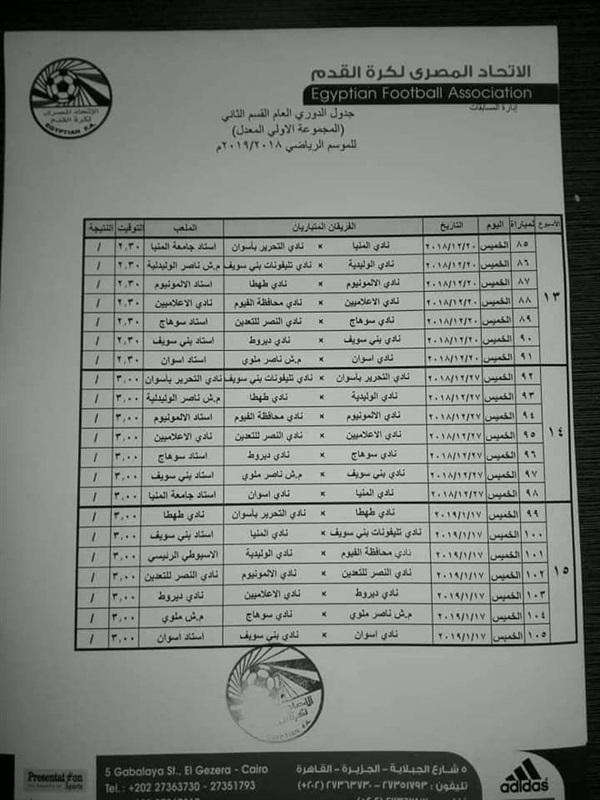 الاتحاد المصرى لكرة القدم
Egyptian Football Association
إدارة المسابقات
الاتحاد المصرى
لكرة القدم
EGYPTIAN F.A.
جدول الدوري العام القسم الثاني
(المجموعة الاولي المعدل)
للموسم الرياضي ٢٠١٩/٢٠١٨م
الاسبوع المباراة اليوم التاريخ الفريقان المتباريان الملعب التوقيت النتيجة
٨٥ الخميس ٢٠١٨/١٢/٢٠ نادي المنيا × نادي التحرير بأسوان استاد جامعة المنيا ٢,٣٠ /
٨٦ الخميس ٢٠١٨/١٢/٢٠ نادي الوليدية × نادي تليفونات بني سويف م.ش ناصر الوليدلية ٢,٣٠ /
٨٧ الخميس ٢٠١٨/١٢/٢٠ نادي الالمونيوم × نادي طهطا استاد الالمونيوم ٢,٣٠ /
١٣ ٨٨ الخميس ٢٠١٨/١٢/٢٠ نادي الاعلاميين × نادي محافظة الفيوم نادي الاعلاميين ٢,٣٠ /
٨٩ الخميس ٢٠١٨/١٢/٢٠ نادي سوهاج × نادي النصر للتعدين استاد سوهاج ٢,٣٠ /
٩٠ الخميس ٢٠١٨/١٢/٢٠ نادي بني سويف × نادي ديروط استاد بني سويف ٢,٣٠ /
٩١ الخميس ٢٠١٨/١٢/٢٠ نادي اسوان × م.ش ناصر ملوي استاد اسوان ٢,٣٠ /
٩٢ الخميس ٢٠١٨/١٢/٢٧ نادي التحرير بأسوان × نادي تليفونات بني سويف نادي التحرير بأسوان ٣,٠٠ /
٩٣ الخميس ٢٠١٨/١٢/٢٧ نادي الوليدية × نادي طهطا م.ش ناصر الوليدية ٣,٠٠ /
٩٤ الخميس ٢٠١٨/١٢/٢٧ نادي الالمونيوم × نادي محافظة الفيوم استاد الالمونيوم ٣,٠٠ /
١٤ ٩٥ الخميس ٢٠١٨/١٢/٢٧ نادي الاعلاميين × نادي النصر للتعدين نادي الاعلاميين ٣,٠٠ /
٩٦ الخميس ٢٠١٨/١٢/٢٧ نادي سوهاج × نادي ديروط استاد سوهاج ٣,٠٠ /
٩٧ الخميس ٢٠١٨/١٢/٢٧ نادي بني سويف × م.ش ناصر ملوي استاد بني سويف ٣,٠٠ /
٩٨ الخميس ٢٠١٨/١٢/٢٧ نادي المنيا × نادي اسوان استاد جامعة المنيا ٣,٠٠ /
٩٩ الخميس ٢٠١٩/١/١٧ نادي طهطا × نادي التحرير بأسوان نادي طهطا ٣,٠٠ /
١٠٠ الخميس ٢٠١٩/١/١٧ نادي تليفونات بني سويف × نادي المنيا استاد بني سويف ٣,٠٠ /
١٠١ الخميس ٢٠١٩/١/١٧ نادي محافظة الفيوم × نادي الوليدية الاسيوطي الرئيسي ٣,٠٠ /
١٥ ١٠٢ الخميس ٢٠١٩/١/١٧ نادي النصر للتعدين × نادي الالمونيوم نادي النصر للتعدين ٣,٠٠ /
١٠٣ الخميس ٢٠١٩/١/١٧ نادي ديروط × نادي الاعلاميين نادي ديروط ٣,٠٠ /
١٠٤ الخميس ٢٠١٩/١/١٧ م.ش ناصر ملوي × نادي سوهاج م.ش ملوي ٣,٠٠ /
١٠٥ الخميس ٢٠١٩/١/١٧ نادي اسوان × نادي بني سويف استاد اسوان ٣,٠٠ /
adidas
٥ شارع الجبلاية - الجزيرة - القاهرة
تليفون : ٢٧٣٥١٧٩٣ - ٢٧٣٦٣٧٣٠ (٢٠٢+)
5 Gabalaya St., El Gezera - Cairo
Tel. : +202 27363730 - 27351793
Presentation
Sports